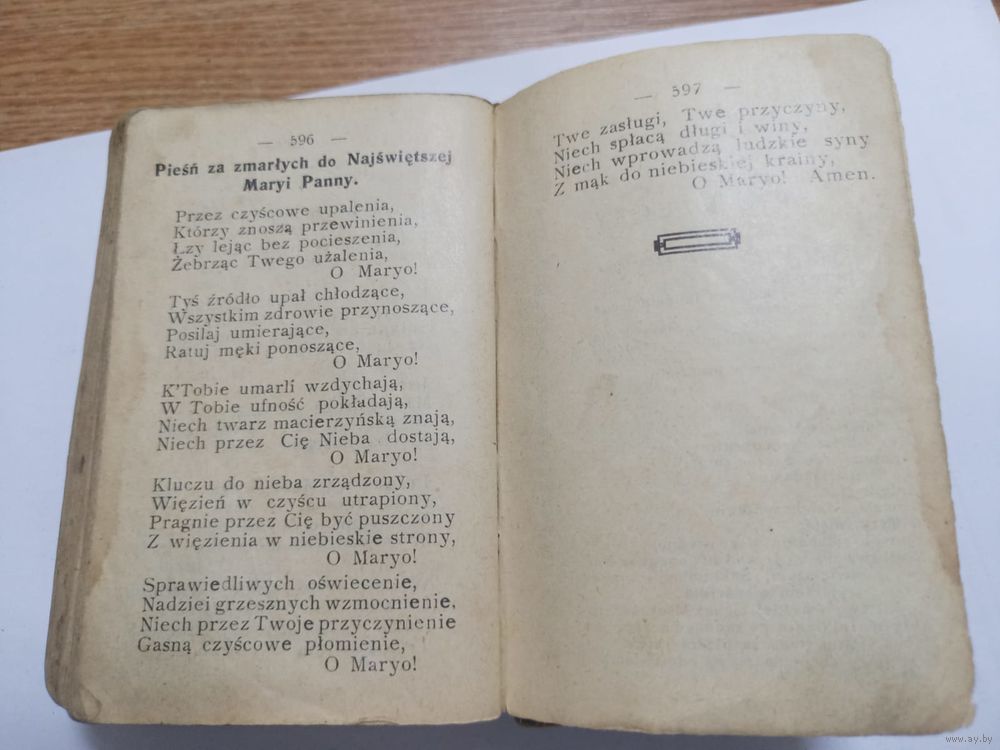 — 596 —
Pieśń za zmarłych do Najświętszej
Maryi Panny.
Przez czyścowe upalenia,
Którzy znoszą przewinienia,
Łzy lejąc bez pocieszenia,
Żebrząc Twego użalenia,
O Maryo!
Tyś źródło upał chłodzące,
Wszystkim zdrowie przynoszące,
Posilaj umierające,
Ratuj męki ponoszące,
O Maryo!
K'Tobie umarli wzdychają,
W Tobie ufność pokładają,
Niech twarz macierzyńską znają,
Niech przez Cię Nieba dostają,
O Maryo!
Kluczu do nieba zrządzony,
Więzień w czyścu utrapiony,
Pragnie przez Cię być puszczony
Z więzienia w niebieskie strony,
O Maryo!
Sprawiedliwych oświecenie,
Nadziei grzesznych wzmocnienie,
Niech przez Twoje przyczynienie
Gasną czyścowe płomienie,
O Maryo!
— 597 —
Twe zasługi, Twe przyczyny,
Niech spłacą długi i winy,
Niech wprowadzą ludzkie syny
Z mąk do niebieskiej krainy,
O Maryo! Amen.
www.ay.by